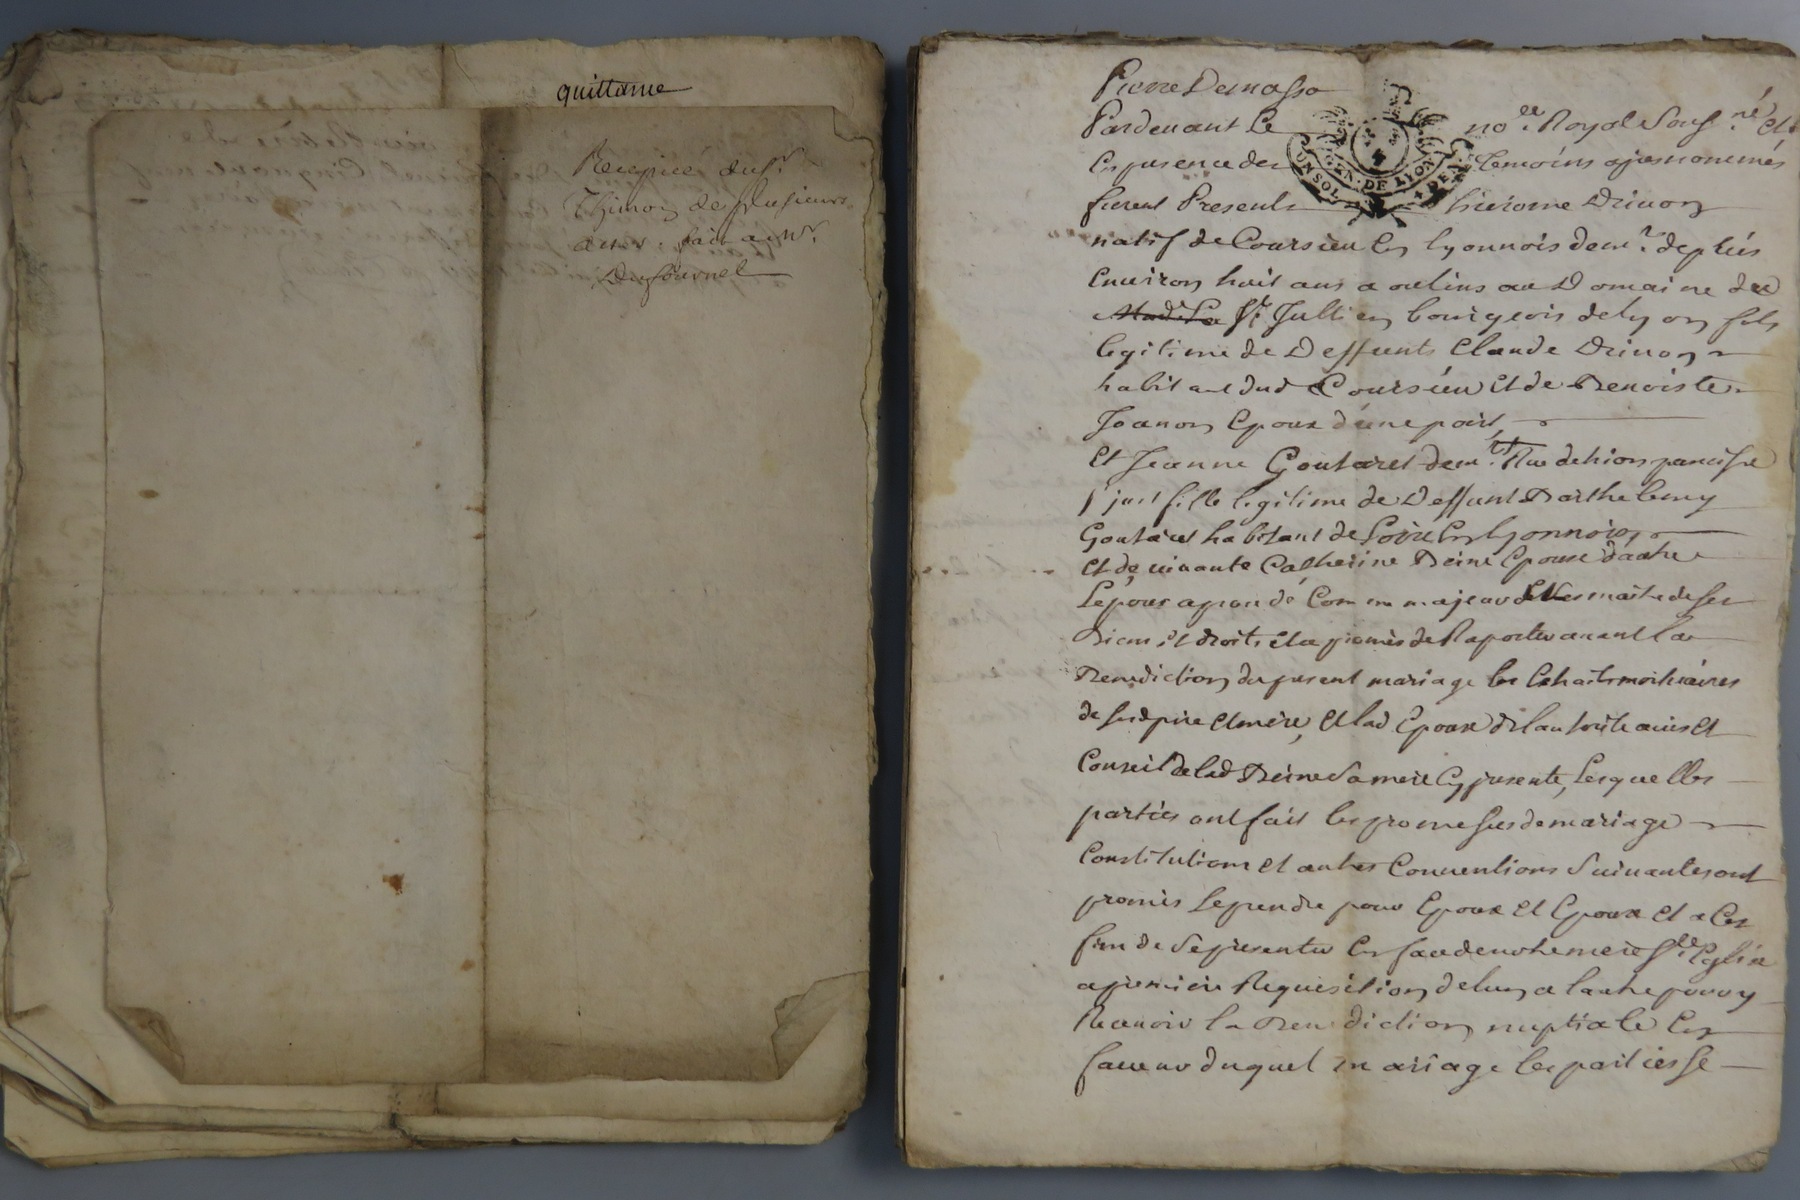 quittance
Recepicé du Sr.
Thimon de plusieurs
actes. fait a Mr.
Dufournel
Pierre Demasso
Pardevant Le no.re Royal Sous.né et
En presence des temoins apresnommés
GEN. DE LYON
furent Presents hierome Drivon
natif de Coursieu En lyonnois dem.t depuis
Environ huit ans a oulins au Domaine du
Sr. Jullien bourgeois de lyon fils
legitime de Deffunts Claude Drivon
habitant dud Coursieu Et de Benoiste
Joanon Epoux d'une part,
Et Jeanne Goutaret dem.nt Rue de trion paroisse
st just fille legitime de Deffunt Barthelemy
Goutaret habitant de Loire En lyonnois
Et de vivante Catherine Reine Epouse d'autre
Lepoux agrondé Comme majeur Et maitre de ses
Biens et droits Et a promis de Raporter avant la
Benediction du present mariage les Extraits mortuaires
de sesd pere Et mere, Et lad Epouse de lautorité avis Et
Conseil de lad Reine Sa mere Cy presente, Lesquelles
parties ont fait les promesses de mariage
Constitutions Et autres Conventions Suivantes ont
promis Se prendre pour Epoux Et Epouse Et a Ces
fins de Se presenter En face de notre mere Ste Eglise
a premiere Requisition de lun a lautre pour y
Recevoir la Benediction nuptiale En
faveur duquel mariage les parties Se